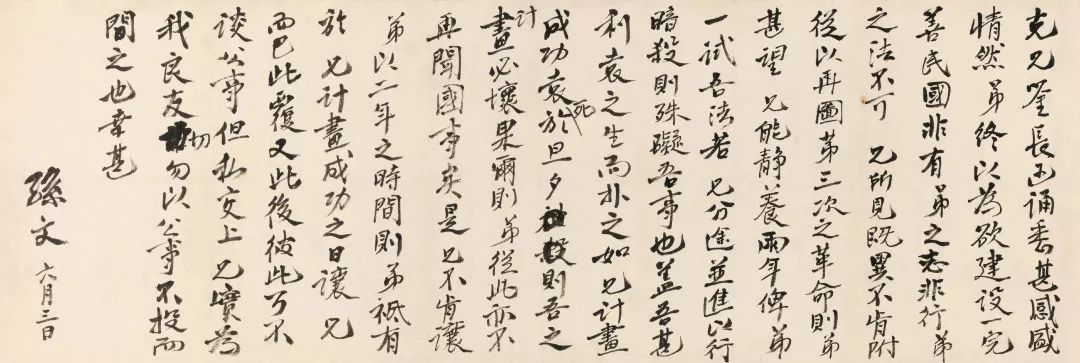 克兄鉴长函诵悉甚感盛
情然弟终以為欲建設一完
善民國非有弟之志非行弟
之法不可 兄所見既異不肯附
從以再圖第三次之革命則弟
甚望 兄能静養兩年俾弟
一試吾法若 兄分途並進以行
暗殺則殊礙吾事也蓋吾甚
利袁之生而扑之如兄計畫
成功袁死於旦夕則吾之
計畫必壞果爾則弟從此亦不
再聞國事矣是兄不肯讓
弟以二年之時間則弟祗有
於兄計畫成功之日讓 兄
而已此覆又此後彼此可不
談公事但私交上兄實為
我良友切勿以公事不投而
間之也幸甚
孫文 六月三日